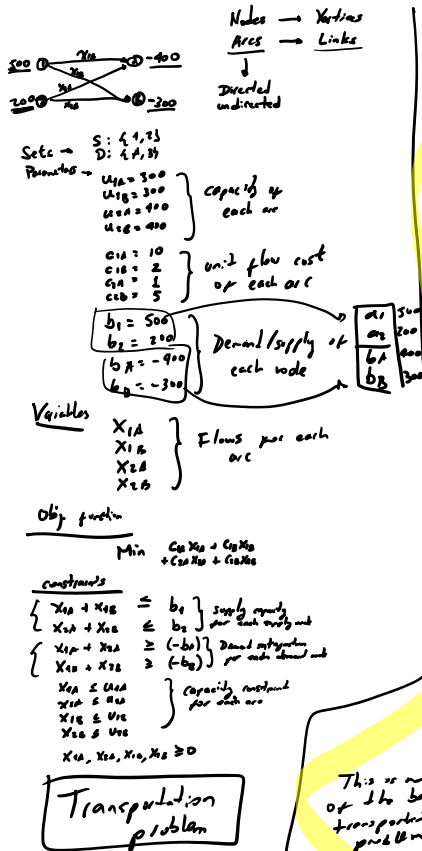 Nodes → Vertices
Arcs → Links
Directed
undirected
500 1 X1A A -400
X1B
X2A
200 2 X2B B -300
Sets → S: {1,2}
D: {A,B}
Parameters →
U1A = 300
U1B = 300
U2A = 400
U2B = 400
capacity of
each arc
C1A = 10
C1B = 2
C2A = 1
C2B = 5
unit flow cost
of each arc
b1 = 500
b2 = 200
bA = -400
bB = -300
Demand/supply of
each node
a1 500
a2 200
bA 400
bB 300
Variables
X1A
X1B
X2A
X2B
Flows per each
arc
Obj function
Min C1A X1A + C1B X1B
+ C2A X2A + C2B X2B
constraints
X1A + X1B ≤ b1
X2A + X2B ≤ b2
supply capacity
for each supply node
X1A + X2A ≥ (-bA)
X1B + X2B ≥ (-bB)
Demand satisfaction
per each demand node
X1A ≤ U1A
X2A ≤ U2A
X1B ≤ U1B
X2B ≤ U2B
capacity constraint
for each arc
X1A, X2A, X1B, X2B ≥ 0
Transportation
problem
This is
of the